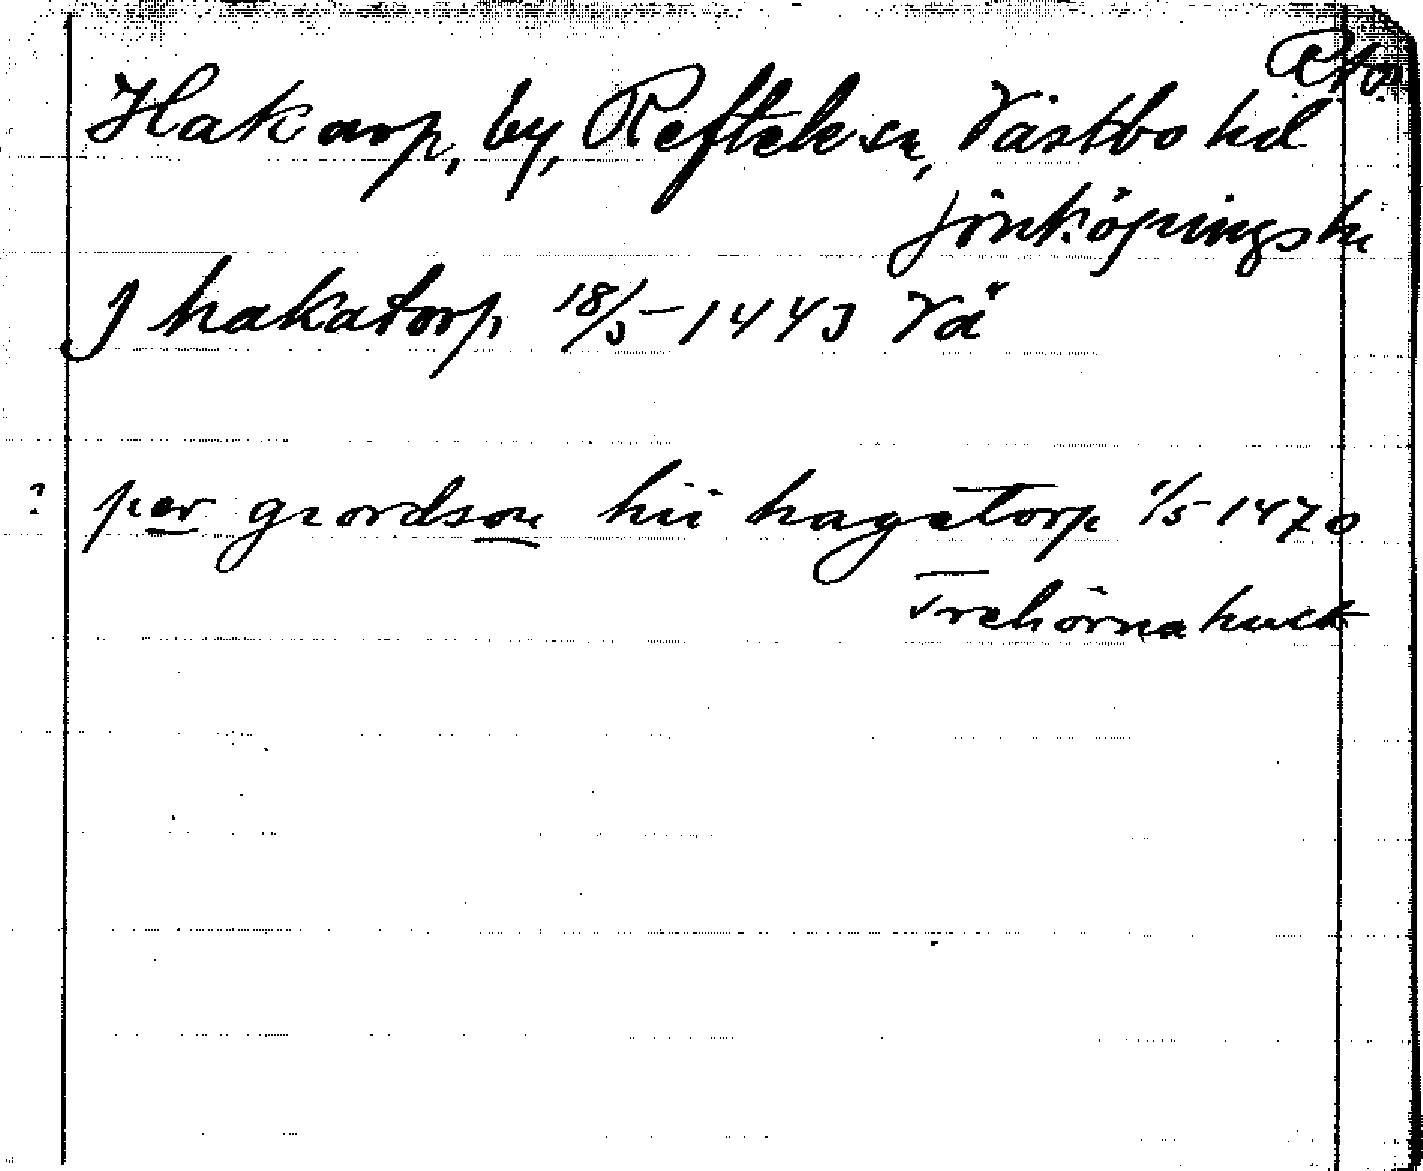 Pto
Hakarp, by, Reftele sn, Västbo hd
Jönköpings ln
J hakatorp 18/5-1443 Vä
? per grordson hii hagatorp 1/5-1470
Trehörna